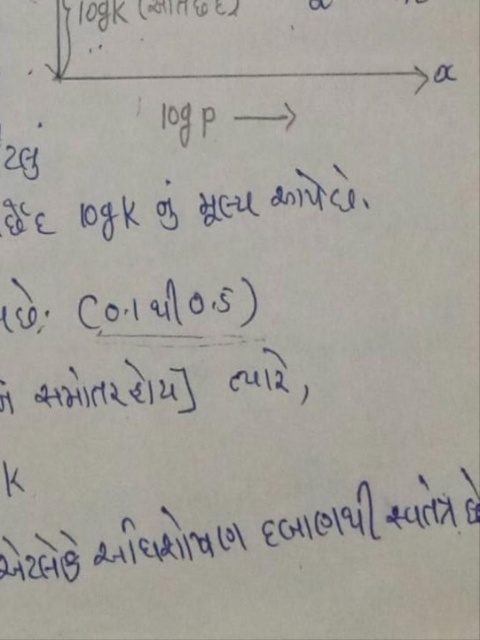 logK (આંતછેદ)
x
log p →
ટલું
છેદ logK નું મૂલ્ય આપે છે.
છે. (0.1 થી 0.5)
સમાંતર હોય] ત્યારે,
K
એટલેકે અધિશોષણ દબાણથી સ્વતંત્ર છે